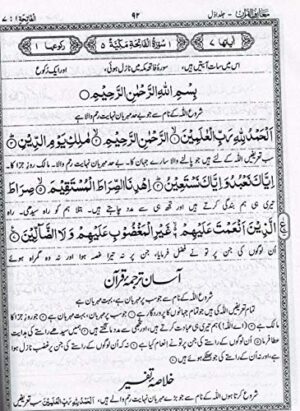 معارف القرآن جلد اول
۹۲
الفاتحۃ ۱ : ۷
اٰیاتھا ۷
۱ سُوْرَۃُ الْفَاتِحَۃِ مَکِّیَّۃٌ ۵
رکوعھا ۱
اس میں سات آیتیں ہیں، سورۂ فاتحہ مکہ میں نازل ہوئی، اور ایک رکوع
بِسْمِ اللّٰهِ الرَّحْمٰنِ الرَّحِیْمِ
شروع اللہ کے نام سے جو بے حد مہربان نہایت رحم والا ہے
اَلْحَمْدُ لِلّٰهِ رَبِّ الْعٰلَمِیْنَ ۝ الرَّحْمٰنِ الرَّحِیْمِ ۝ مٰلِكِ یَوْمِ الدِّیْنِ ۝
سب تعریفیں اللہ کے لئے ہیں جو پالنے والا سارے جہان کا۔ بے حد مہربان نہایت رحم والا۔ مالک روز جزا کا۔
اِیَّاكَ نَعْبُدُ وَ اِیَّاكَ نَسْتَعِیْنُ ۝ اِهْدِنَا الصِّرَاطَ الْمُسْتَقِیْمَ ۝ صِرَاطَ
تیری ہی ہم بندگی کرتے ہیں اور تجھی سے مدد چاہتے ہیں۔ بتلا ہم کو راہ سیدھی۔ راہ
الَّذِیْنَ اَنْعَمْتَ عَلَیْهِمْ غَیْرِ الْمَغْضُوْبِ عَلَیْهِمْ وَ لَا الضَّآلِّیْنَ ۝
ان لوگوں کی جن پر تو نے فضل فرمایا، جن پر نہ تیرا غصہ ہوا اور نہ وہ گمراہ ہوئے
آسان ترجمۂ قرآن
شروع اللہ کے نام سے جو سب پر مہربان ہے، بہت مہربان ہے
تمام تعریفیں اللہ کی ہیں جو تمام جہانوں کا پروردگار ہے جو سب پر مہربان ہے، بہت مہربان ہے جو روز جزا کا
مالک ہے (اے اللہ) ہم تیری ہی عبادت کرتے ہیں، اور تجھی سے مدد مانگتے ہیں ہمیں سیدھے راستے کی ہدایت
عطا فرما ان لوگوں کے راستے کی جن پر تو نے انعام کیا ہے نہ کہ ان لوگوں کے راستے کی جن پر غضب نازل ہوا
ہے، اور نہ ان کے راستے کی جو بھٹکے ہوئے ہیں
خلاصۂ تفسیر
شروع کرتا ہوں اللہ کے نام سے جو بڑے مہربان نہایت رحم والے ہیں، اَلْحَمْدُ لِلّٰهِ رَبِّ الْعٰلَمِیْنَ سب تعریفیں